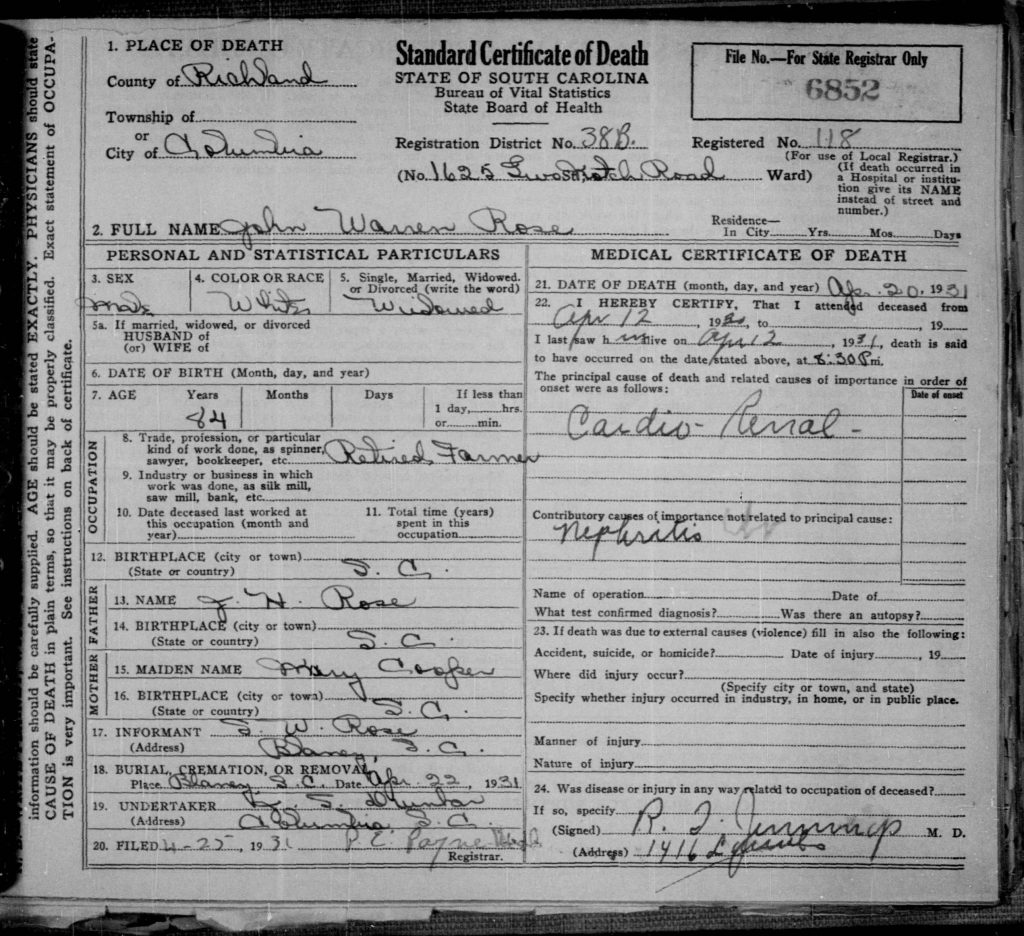 information should be carefully supplied. AGE should be stated EXACTLY. PHYSICIANS should state
CAUSE OF DEATH in plain terms, so that it may be properly classified. Exact statement of OCCUPA-
TION is very important. See instructions on back of certificate.
Standard Certificate of Death
STATE OF SOUTH CAROLINA
Bureau of Vital Statistics
State Board of Health
File No.—For State Registrar Only
6852
1. PLACE OF DEATH
County of Richland
Township of
or
City of Columbia
Registration District No. 38B.
Registered No. 118
(For use of Local Registrar.)
(No. 1625 Two Notch Road Ward)
(If death occurred in
a Hospital or institu-
tion give its NAME
instead of street and
number.)
2. FULL NAME John Warren Rose
Residence—
In City Yrs. Mos. Days
PERSONAL AND STATISTICAL PARTICULARS
3. SEX
Male
4. COLOR OR RACE
White
5. Single, Married, Widowed.
or Divorced (write the word)
Widowed
5a. If married, widowed, or divorced
HUSBAND of
(or) WIFE of
6. DATE OF BIRTH (Month, day, and year)
7. AGE Years Months Days If less than
1 day, hrs.
84 or min.
OCCUPATION
8. Trade, profession, or particular
kind of work done, as spinner,
sawyer, bookkeeper, etc. Retired Farmer
9. Industry or business in which
work was done, as silk mill,
saw mill, bank, etc.
10. Date deceased last worked at
this occupation (month and
year)
11. Total time (years)
spent in this
occupation
12. BIRTHPLACE (city or town)
(State or country) S. C.
FATHER
13. NAME J. H. Rose
14. BIRTHPLACE (city or town)
(State or country) S. C.
MOTHER
15. MAIDEN NAME Mary Cooper
16. BIRTHPLACE (city or town)
(State or country) S. C.
17. INFORMANT S. W. Rose
(Address) Blaney, S. C.
18. BURIAL, CREMATION, OR REMOVAL,
Place Blaney, S. C. Date Apr. 22, 1931
19. UNDERTAKER J. S. Dunbar
(Address) Columbia, S. C.
20. FILED 4-25, 1931 P. C. Payne
Registrar.
MEDICAL CERTIFICATE OF DEATH
21. DATE OF DEATH (month, day, and year) Apr. 20, 1931
22. I HEREBY CERTIFY, That I attended deceased from
Apr 12, 19 , to , 19
I last saw him alive on Apr 12, 1931, death is said
to have occurred on the date stated above, at 8:30 P.m.
The principal cause of death and related causes of importance in order of
onset were as follows:
Date of onset
Cardio-Renal-
Contributory causes of importance not related to principal cause:
Nephritis
Name of operation Date of
What test confirmed diagnosis? Was there an autopsy?
23. If death was due to external causes (violence) fill in also the following:
Accident, suicide, or homicide? Date of injury , 19
Where did injury occur?
(Specify city or town, and state)
Specify whether injury occurred in industry, in home, or in public place.
Manner of injury
Nature of injury
24. Was disease or injury in any way related to occupation of deceased?
If so, specify
(Signed) R. T. Jennings M. D.
(Address) 1416